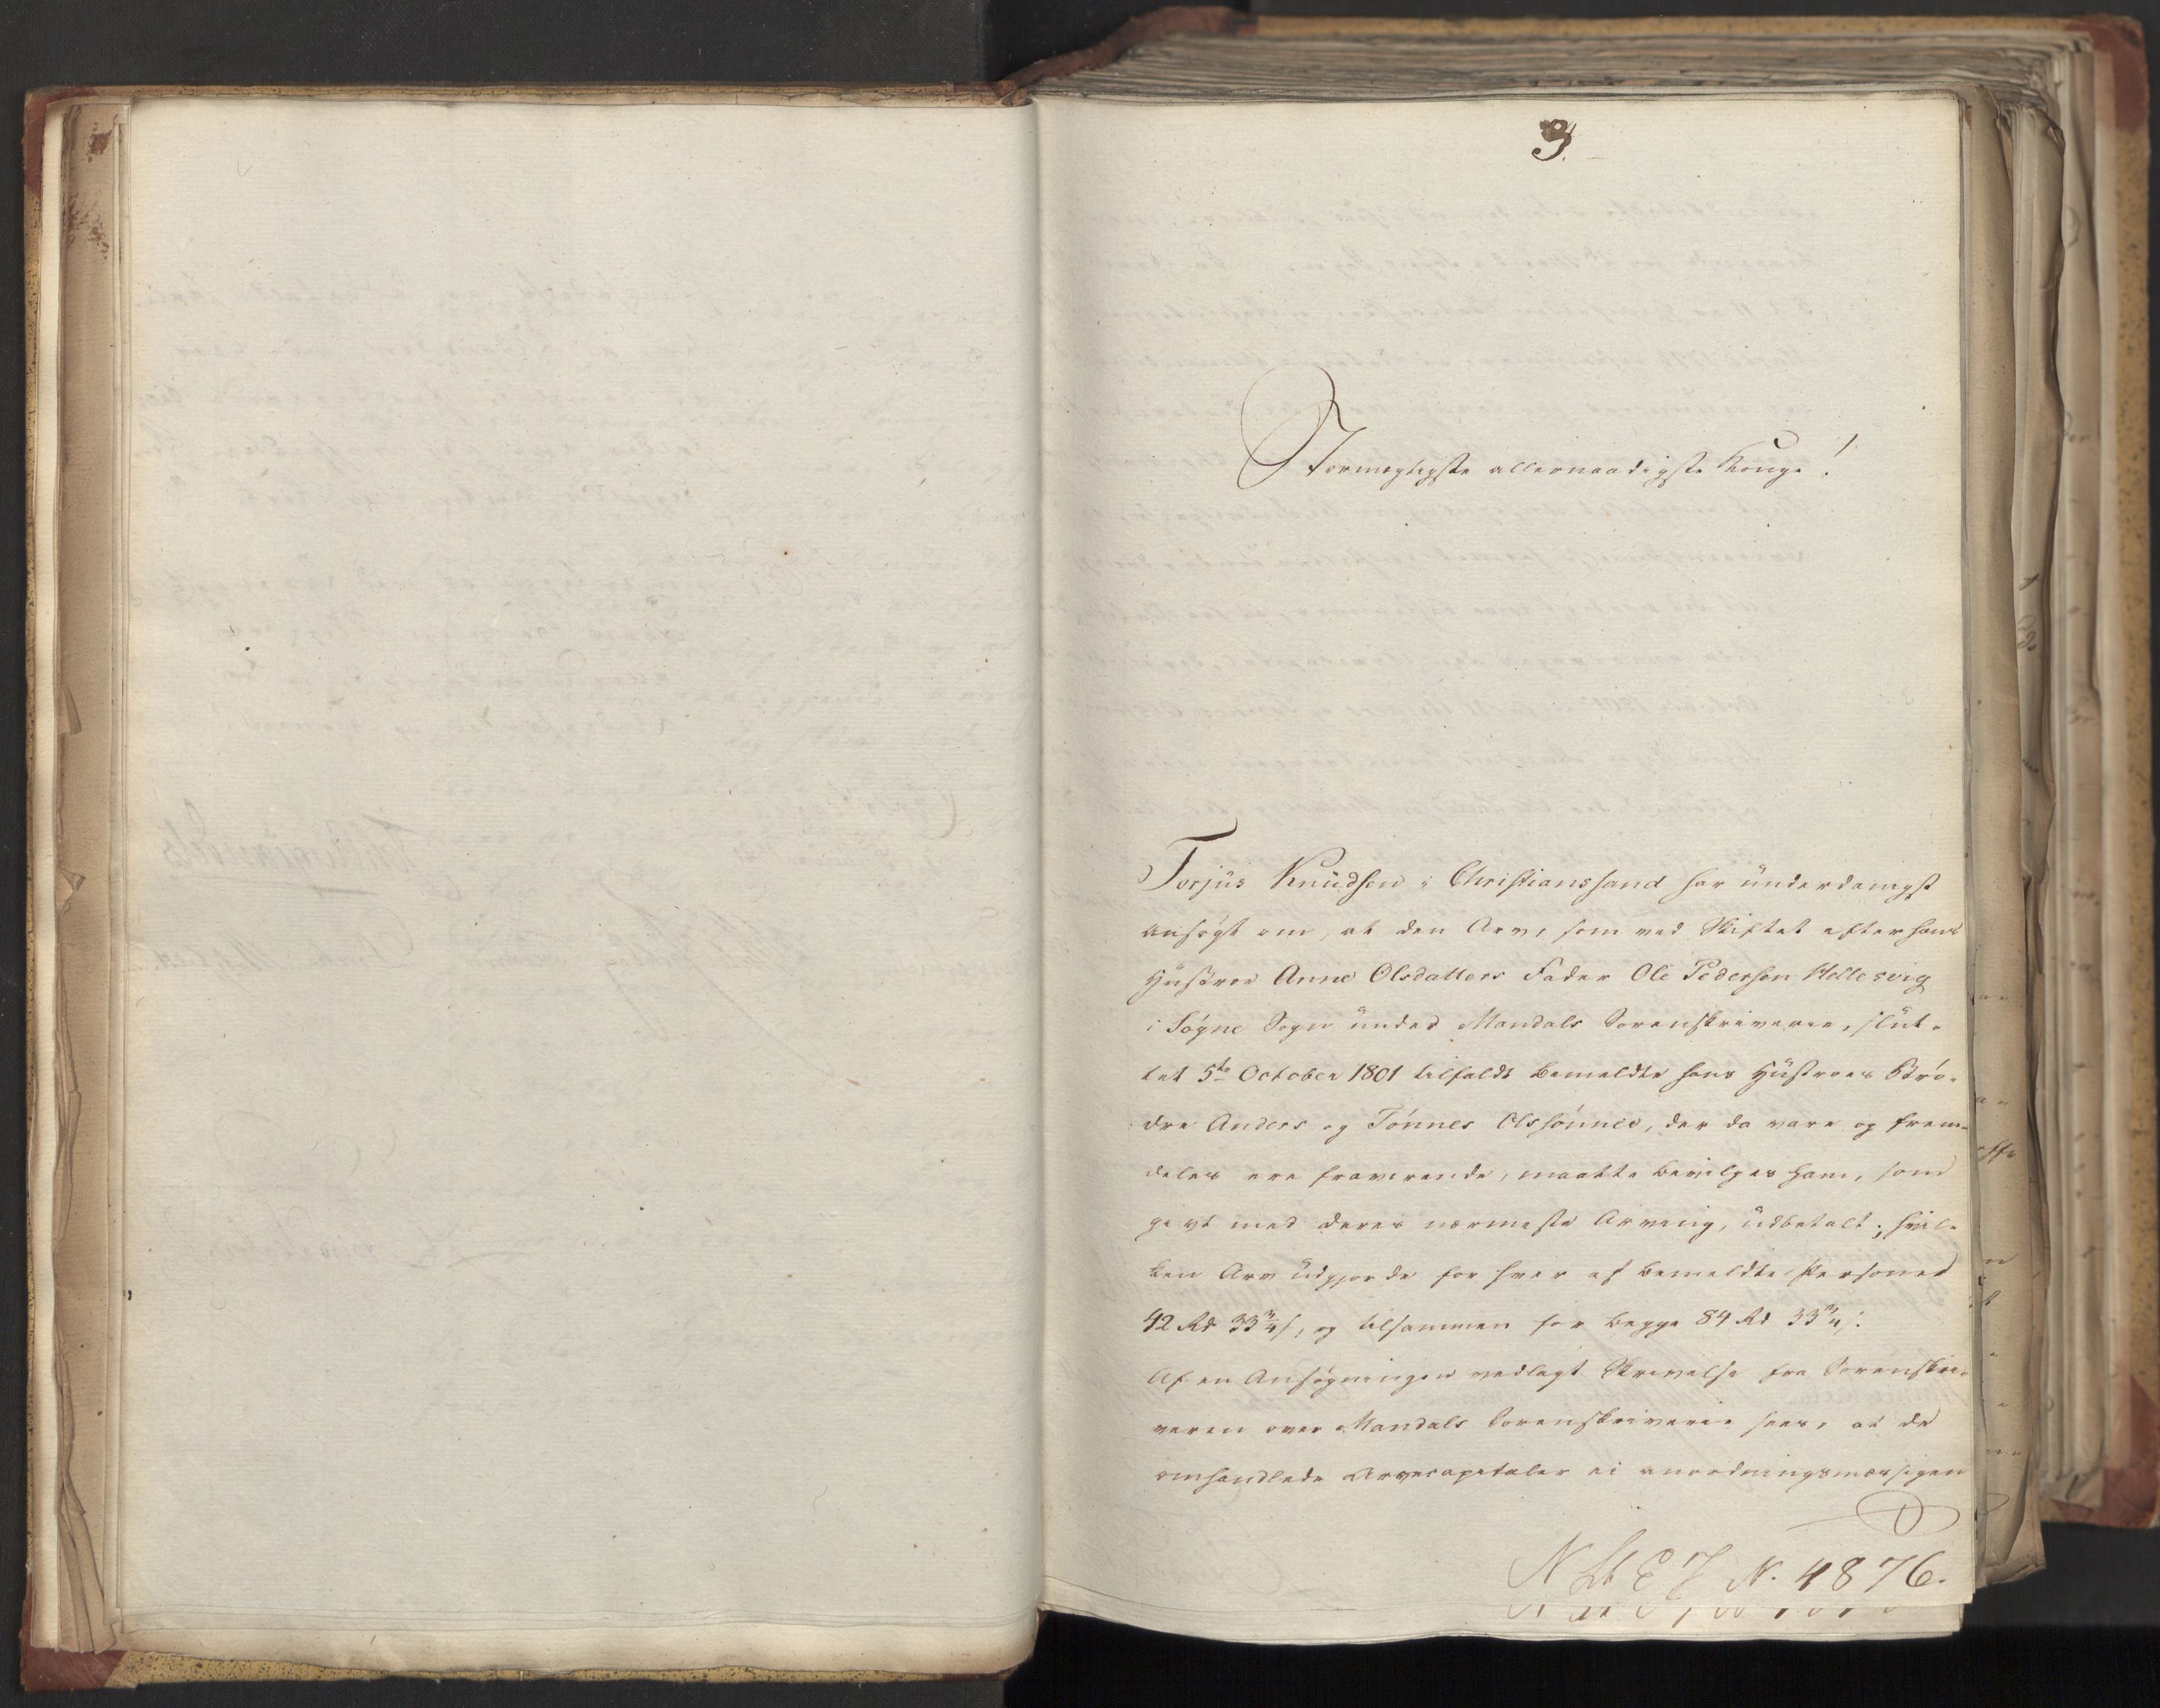 3.
Stormægtigste allernaadigste Konge!
Torjüs Knüdsen i Christianssand har ünderdanigst
ansøgt om, at den Arv, som ved Skiftet efter hans
Hüstroe Anne Olsdatters Fader Ole Pedersen Hellesvig
i Søgne Sogn ünder Mandals Sorenskriverie, slüt-
tet 5te October 1801 tilfaldt bemeldte hans Hüstroes Brö-
dre Anders og Tönnes Olssönner, der da vare og frem-
deles ere fraværende, maatte bevilges ham, som
givt med deres nærmeste Arving, üdbetalt; hvil-
ken Arv üdgjorde for hver af bemeldte Personer
42 Rd 33 3/4 s, og tilsammen for begge 84 Rd 33 3/4 s.
Af en Ansøgningen vedlagt Skrivelse fra Sorenskri-
veren over Mandals Sorenskriverie sees, at de
omhandlede Arvecapitaler ei anordningsmæssigen
N. 4876.